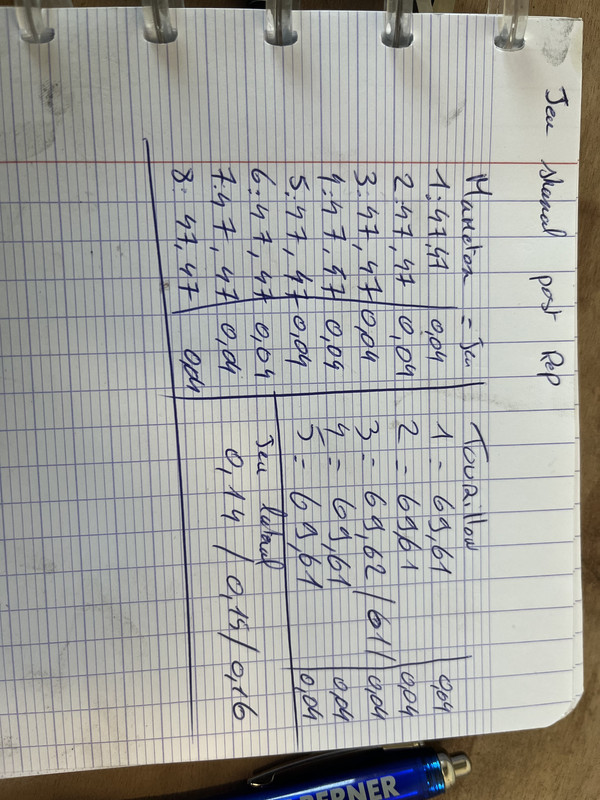 Jeu post Rep
Maneton = Jeu
1:47,47 0,04
2:47,47 0,04
3:47,47 0,04
4:47,47 0,04
5:47,47 0,04
6:47,47 0,04
7:47,47 0,04
8:47,47 0,04
Tourillon
1 = 69,61 0,04
2 = 69,61 0,04
3 = 69,62/61/ 0,04
4 = 69,61 0,04
5 = 69,61 0,04
Jeu lateral
0,14 / 0,15 / 0,16
BERNER